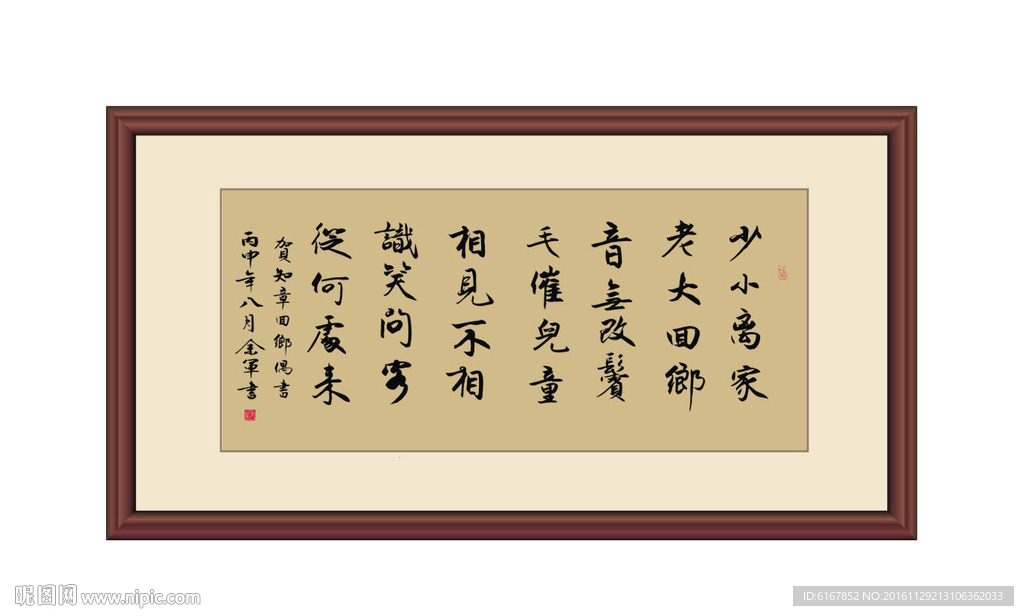 少小离家
老大回鄉
音無改鬢
毛催兒童
相見不相
識笑问客
從何處来
賀知章回鄉偶書
丙申年八月余軍书
昵图网 www.nipic.com
ID:6167852 NO:20161129213106362033